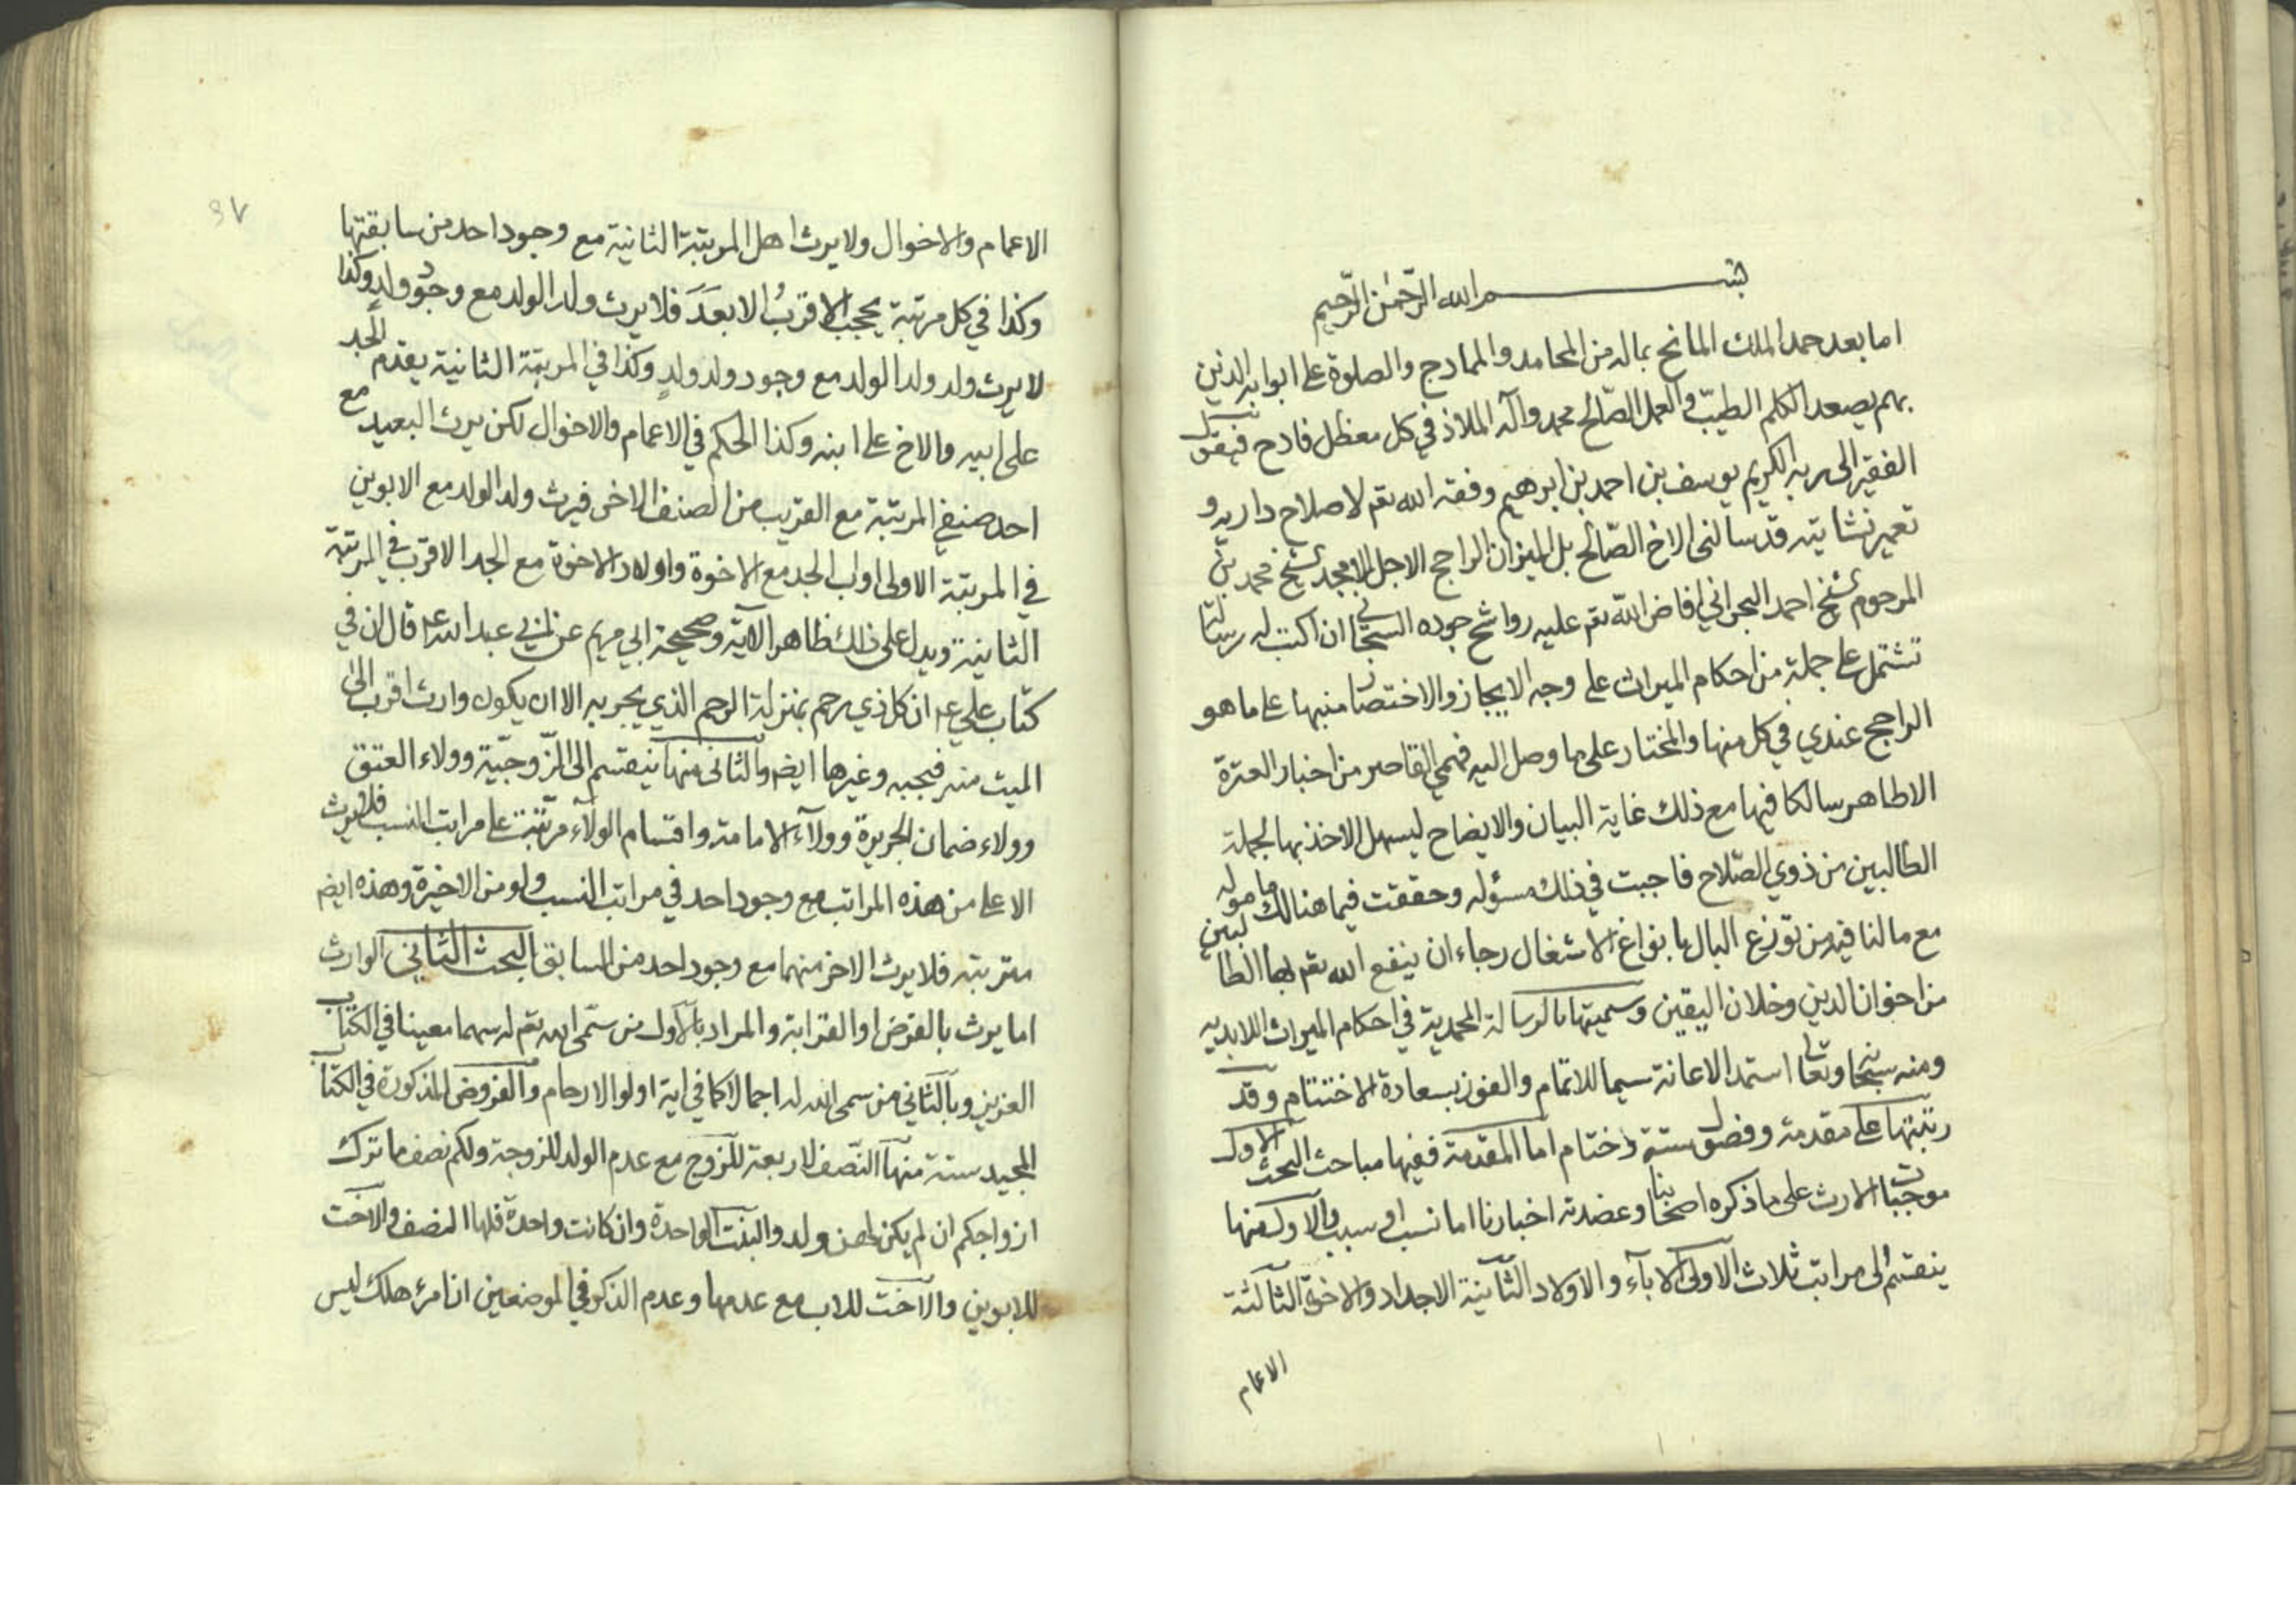 بسم الله الرحمن الرحيم
اما بعد حمد الملك المانح بماله من المحامد والممادح والصلوة على ابوابه الذين
بهم يصعد الكلم الطيب والعمل الصالح محمد وآله الملاذ في كل معظل فادح فيقول
الفقير الى ربه الكريم يوسف بن احمد بن ابرهيم وفقه الله تعم لاصلاح داريه و
تعمير نشاتيه قد سالني الاخ الصالح بل الميزان الراجح الاجل الامجد الشيخ محمد بن
المرحوم الشيخ احمد البحراني افاض الله تعم عليه رواشح جوده السبحاني ان اكتب له رسالة
تشتمل على جملة من احكام الميراث على وجه الايجاز والاختصار منبها على ما هو
الراجح عندي في كل منها والمختار على ما وصل اليه فهمي القاصر من اخبار العترة
الاطاهر سالكا فيها مع ذلك غاية البيان والايضاح ليسهل الاخذ بها لجملة
الطالبين من ذوي الصلاح فاجبت في ذلك مسؤله وحققت فيما هنالك ماموله
مع ما لنا فيه من توزع البال بانواع الاشغال رجاء ان ينفع الله تعم بها الطالبين
من اخوان الدين وخلان اليقين وسميتها بالرسالة المحمدية في احكام الميراث الابديه
ومنه سبحانه وتعالى استمد الاعانة سيما للاتمام والفوز بسعادة الاختتام وقد
رتبتها على مقدمة وفصول ستة وختام اما المقدمة ففيها مباحث البحث الاول
موجبات الارث على ما ذكره اصحابنا وعضدته اخبارنا اما نسب او سبب والاول منها
ينقسم الى مراتب ثلاث الاولى الاباء والاولاد الثانية الاجداد والاخوة الثالثة
الاعمام
٩٧
الاعمام والاخوال ولا يرث اهل المرتبة الثانية مع وجود احد من سابقتها
وكذا في كل مرتبة يحجب الاقرب الابعد فلا يرث ولد الولد مع وجود ولد وكذا
لا يرث ولد ولد الولد مع وجود ولد ولد وكذا في المرتبة الثانية يقدم الجد
على ابيه والاخ على ابنه وكذا الحكم في الاعمام والاخوال لكن يرث البعيد مع
احد صنفي المرتبة مع القريب من الصنف الاخر فيرث ولد الولد مع الابوين
في المرتبة الاولى او اب الجد مع الاخوة واولاد الاخوة مع الجد الاقرب في المرتبة
الثانية ويدل على ذلك ظاهر الاية وصحيحة ابي مريم عن ابي عبد الله ع قال ان في
كتاب علي ع ان كل ذي رحم بمنزلة الرحم الذي يجر به الا ان يكون وارث اقرب الى
الميت منه فيحجبه وغيرها ايضا والثاني منها ينقسم الى الزوجية وولاء العتق
وولاء ضمان الجريرة وولاء الامامة واقسام الولاء مرتبة على مراتب النسب فلا يرث
الاعلى من هذه المراتب مع وجود احد في مراتب النسب ولو من الاخيرة وهذه ايضا
مترتبة فلا يرث الاخر منهما مع وجود احد من السابق البحث الثاني الوارث
اما يرث بالفرض او القرابة والمراد بالاول من سمى الله تعم له سهما معينا في الكتاب
العزيز وبالثاني من سمى الله له اجمالا كما في اية اولوا الارحام والفروض المذكورة في الكتاب
المجيد ستة منها النصف لاربعة للزوج مع عدم الولد للزوجة ولكم نصف ما ترك
ازواجكم ان لم يكن لهن ولد والبنت الواحدة وان كانت واحدة فلها النصف والاخت
للابوين والاخت للاب مع عدمها وعدم الذكور في الموضعين ان امرؤ هلك ليس